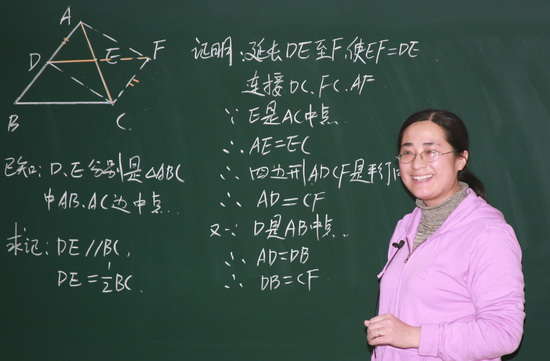 A
D
E
F
B
C
已知:D、E分别是△ABC
中AB、AC边中点.
求证:DE//BC,
DE=1/2BC.
证明:延长DE至F,使EF=DE
连接DC、FC、AF
∵E是AC中点.
∴AE=EC
∴四边形ADCF是平行
∴AD=CF
又∵D是AB中点.
∴AD=DB
∴DB=CF